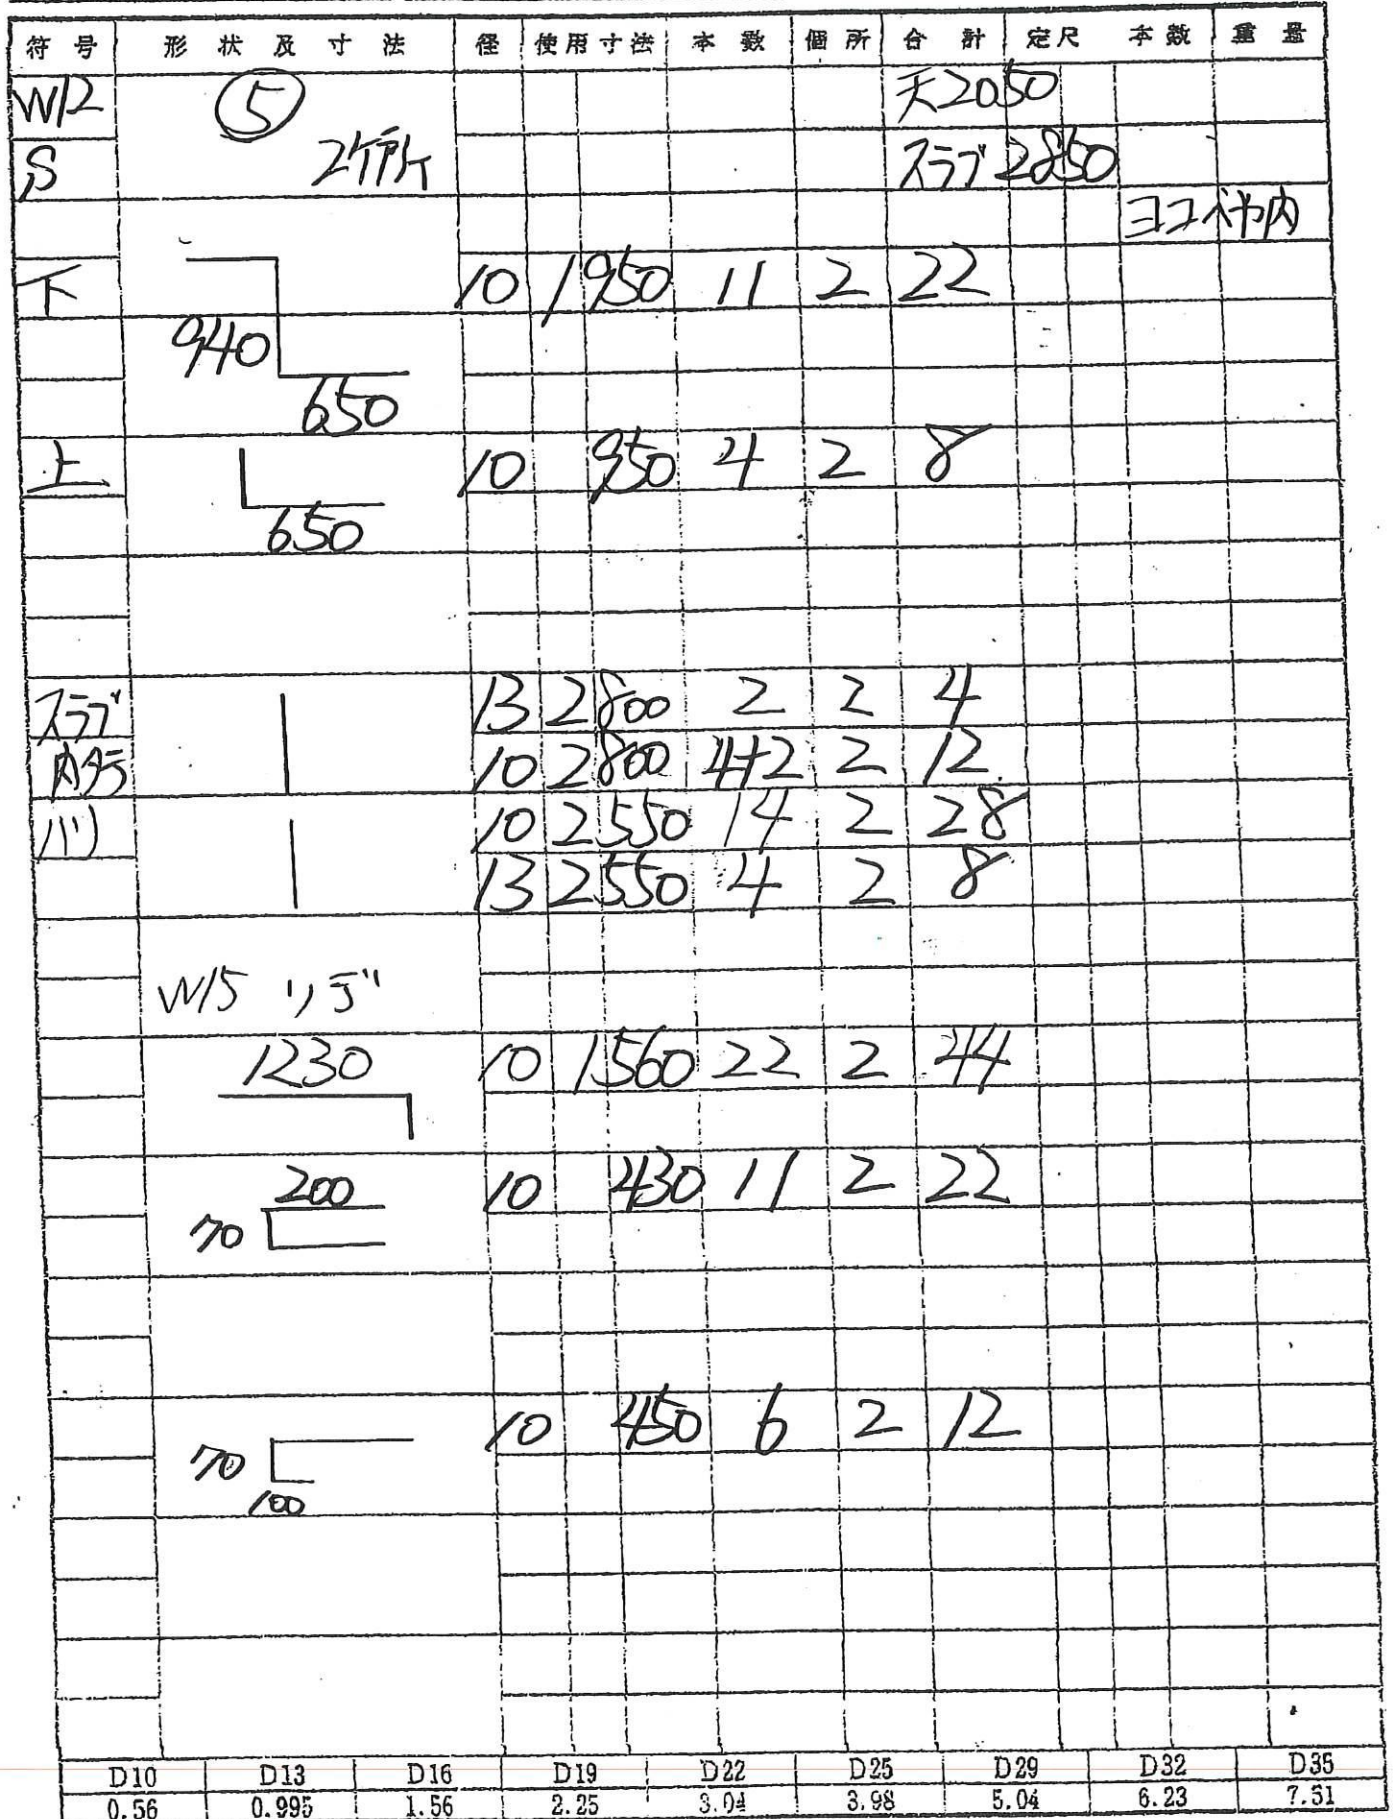 符号 形状及寸法 径 使用寸法 本数 個所 合計 定尺 本数 重量
W12 ⑤ 天2050
S 2ケ所 スラブ 2850
ヨコベヤ内
下 10 1950 11 2 22
940
650
上 10 950 4 2 8
650
スラブ 13 2800 2 2 4
10 2800 4+2 2 12
バリ 10 2550 14 2 28
13 2550 4 2 8
W15 ソデ
1230 10 1560 22 2 44
200 10 430 11 2 22
70
10 450 6 2 12
70
100
D10 D13 D16 D19 D22 D25 D29 D32 D35
0.56 0.995 1.56 2.25 3.04 3.98 5.04 6.23 7.51